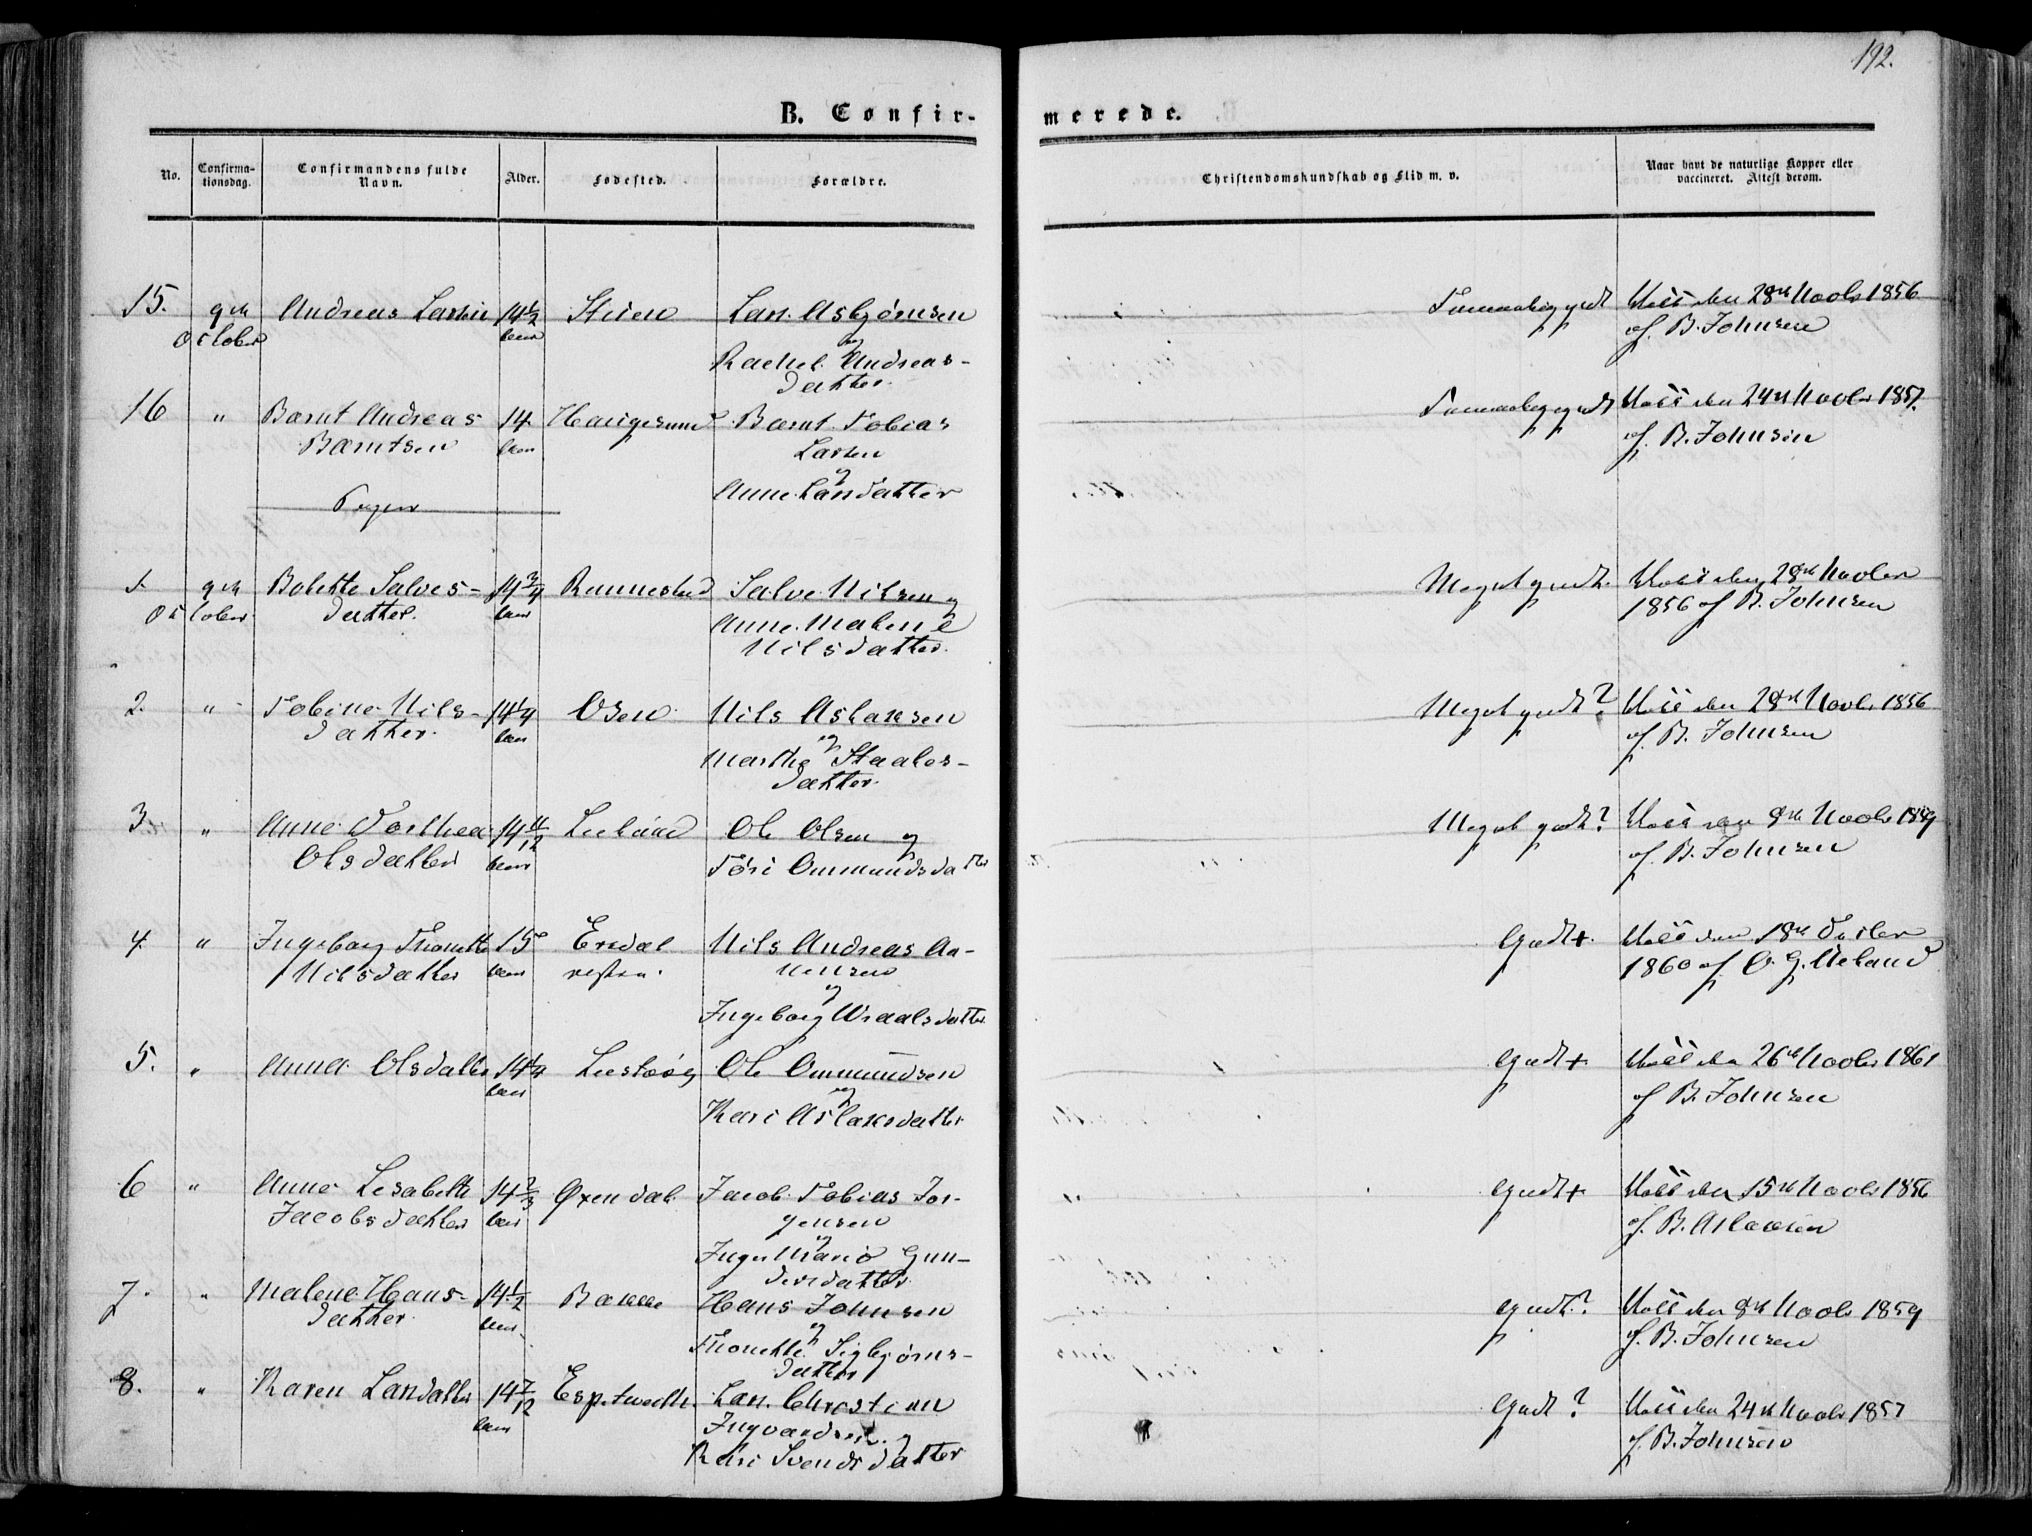 192.
B. Confir-
merede.
No.
Confirma-
tionsdag.
Confirmandens fulde
Navn.
Alder.
Fødested.
Forældre.
Christendomskundskab og Flid m. v.
Naar havt de naturlige Kopper eller
vaccineret. Attest derom.
15. 9de Andreas Larsen 14 1/2 Stien Lars Asbjørnsen
October
og
Rachel Andreas-
datter
Temmelig godt Vacc den 28de Novbr 1856
af B. Johnsen
16 " Bernt Andreas 14 Haugesund Bernt Tobias
Berntsen Larsen
og
Anne Larsdatter
Temmelig godt Vacc den 24de Novbr 1857.
af B. Johnsen
Piger
1. 9de Bolette Salves- 14 3/4 Rennestad Salve Nilsen og
October datter. Anne Malene
Nilsdatter.
Meget godt. Vacc den 28de Novbr
1856 af B. Johnsen
2. " Tobine Nils- 14 1/4 Osen Nils Aslaksen
datter. og
Marthe Staales-
datter.
Meget godt? Vacc den 28de Novbr 1856
af B. Johnsen
3. " Anne Dorthea 14 4/12 Ole Olsen og
Olsdatter Tøri Ommundsdatter
Meget godt? Vacc den 8de Novbr 1859
af B. Johnsen
4. " Ingeborg Thonette 15 Eresdal Nils Andreas Aa-
Nilsdatter vestre. nensen
og
Ingeborg Wraalsdatter
Godt+. Vacc den 18de Octbr
1860 af O. G. Ueland
5. " Anna Olsdatter 14 1/4 Ole Ommundsen
og
Kari Aslaksdatter
Godt+ Vacc den 26de Novbr 1861
af B. Johnsen
6 " Anne Lisabeth 14 2/3 Øxendal Jacob Tobias Jør-
Jacobsdatter gensen
og
Inger Marie Gun-
dersdatter
Godt+ Vacc den 15de Novbr 1856
af B. Aslacsen
7. " Malene Hans- 14 1/2 Bakke Hans Johnsen
datter og
Thonette Sigbjørns-
datter
Godt? Vacc den 8de Novbr 1859
af B. Johnsen
8. " Karen Larsdatter 14 7/12 Esp.tvedt. Lars Christian
Ingvardsen og
Kari Svendsdatter
Godt? Vacc den 24de Novbr 1857
af B. Johnsen